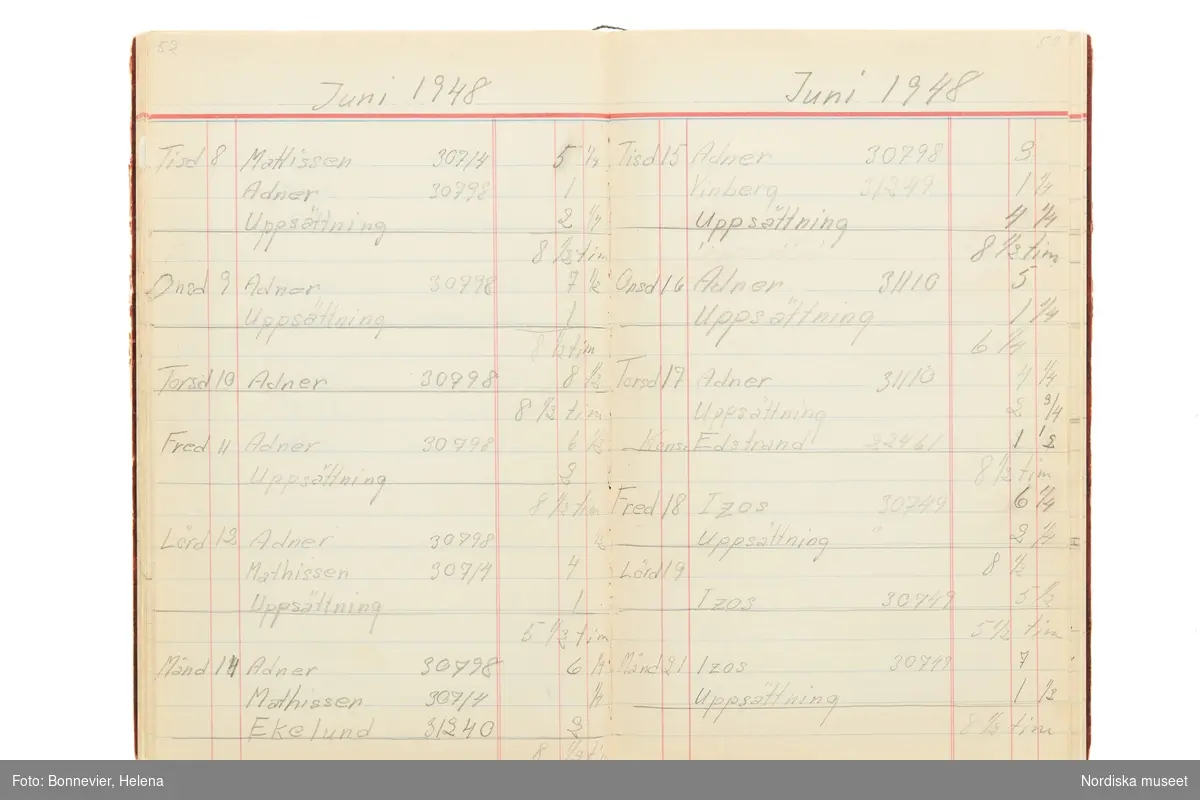 52
Juni 1948
Tisd 8 Mathissen 30714 5 1/4
Adner 30798 1
Uppsättning 2 1/4
8 1/2 tim
Onsd 9 Adner 30798 7 1/2
Uppsättning 1
8 1/2 tim
Torsd 10 Adner 30798 8 1/2
8 1/2 tim
Fred 11 Adner 30798 6 1/2
Uppsättning 2
8 1/2 tim
Lörd 12 Adner 30798 1/2
Mathissen 30714 4
Uppsättning 1
5 1/2 tim
Månd 14 Adner 30798 6 1/4
Mathissen 30714 1/4
Ekelund 31240 2
8 1/2 tim
Juni 1948
Tisd 15 Adner 30798 3
Vinberg 31249 1 1/4
Uppsättning 4 1/4
8 1/2 tim
Onsd 16 Adner 31110 5
Uppsättning 1 1/4
6 1/4
Torsd 17 Adner 31110 4 1/4
Uppsättning 2 3/4
Edstrand 22461 1 1/2
8 1/2 tim
Fred 18 Izos 30749 6 1/4
Uppsättning " 2 1/4
Lörd 19 8 1/2
Izos 30749 5 1/2
5 1/2 tim
Månd 21 Izos 30749 7
Uppsättning 1 1/2
8 1/2 tim
Foto: Bonnevier, Helena
Nordiska museet